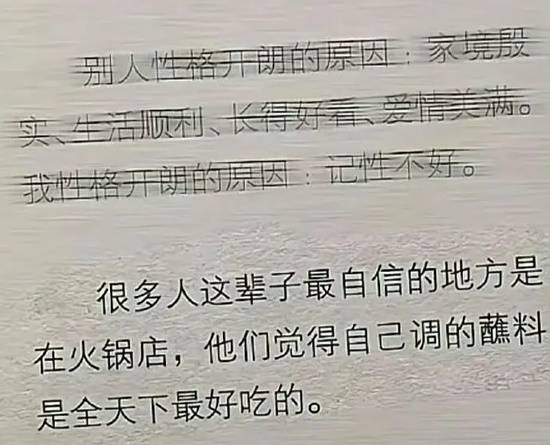 别人性格开朗的原因：家境殷
实、生活顺利、长得好看、爱情美满。
我性格开朗的原因：记性不好。
很多人这辈子最自信的地方是
在火锅店，他们觉得自己调的蘸料
是全天下最好吃的。